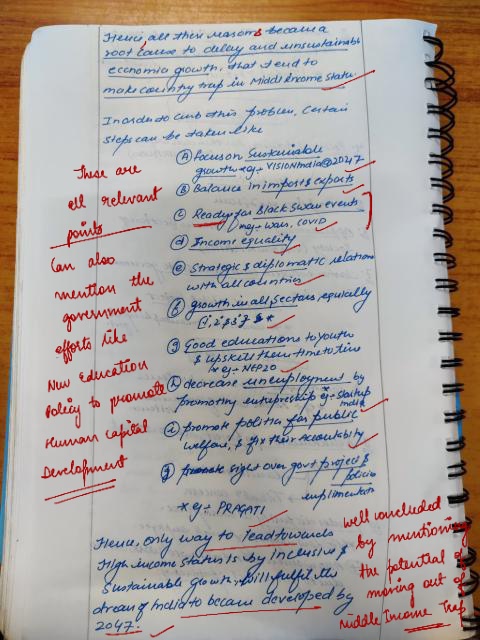 Hence, all their reasons became a
root cause to delay and unsustainable
economic growth, that tend to
make country trap in Middle Income Status
In order to curb this problem, certain
steps can be taken like
(A) focus on Sustainable
growth *eg → VISION India@2047
(B) Balance in imports & exports
(C) Ready for Black Swan events
*eg → wars, COVID
(d) Income equality
(e) Strategic & diplomatic relations
with all countries
(f) growth in all sectors, equally
(g) Good educations to youth
& upskill them time to time
* eg → NEP20
(h) decrease unemployment by
promoting entupreship *eg → Startup
India
(i) promote politics for public
welfare, & fix their accountability
(j) sight over govt projects &
policies
implimentation
* eg → PRAGATI
Hence, only way to lead towards
High income status is by inclusive &
Sustainable Growth, will fulfil the
dream of India to became developed by
2047.
These are
all relevant
points
Can also
mention the
government
efforts like
New Education
Policy to promote
Human Capital
Development
well concluded
by mentioning
the potential of
moving out of
Middle Income Trap